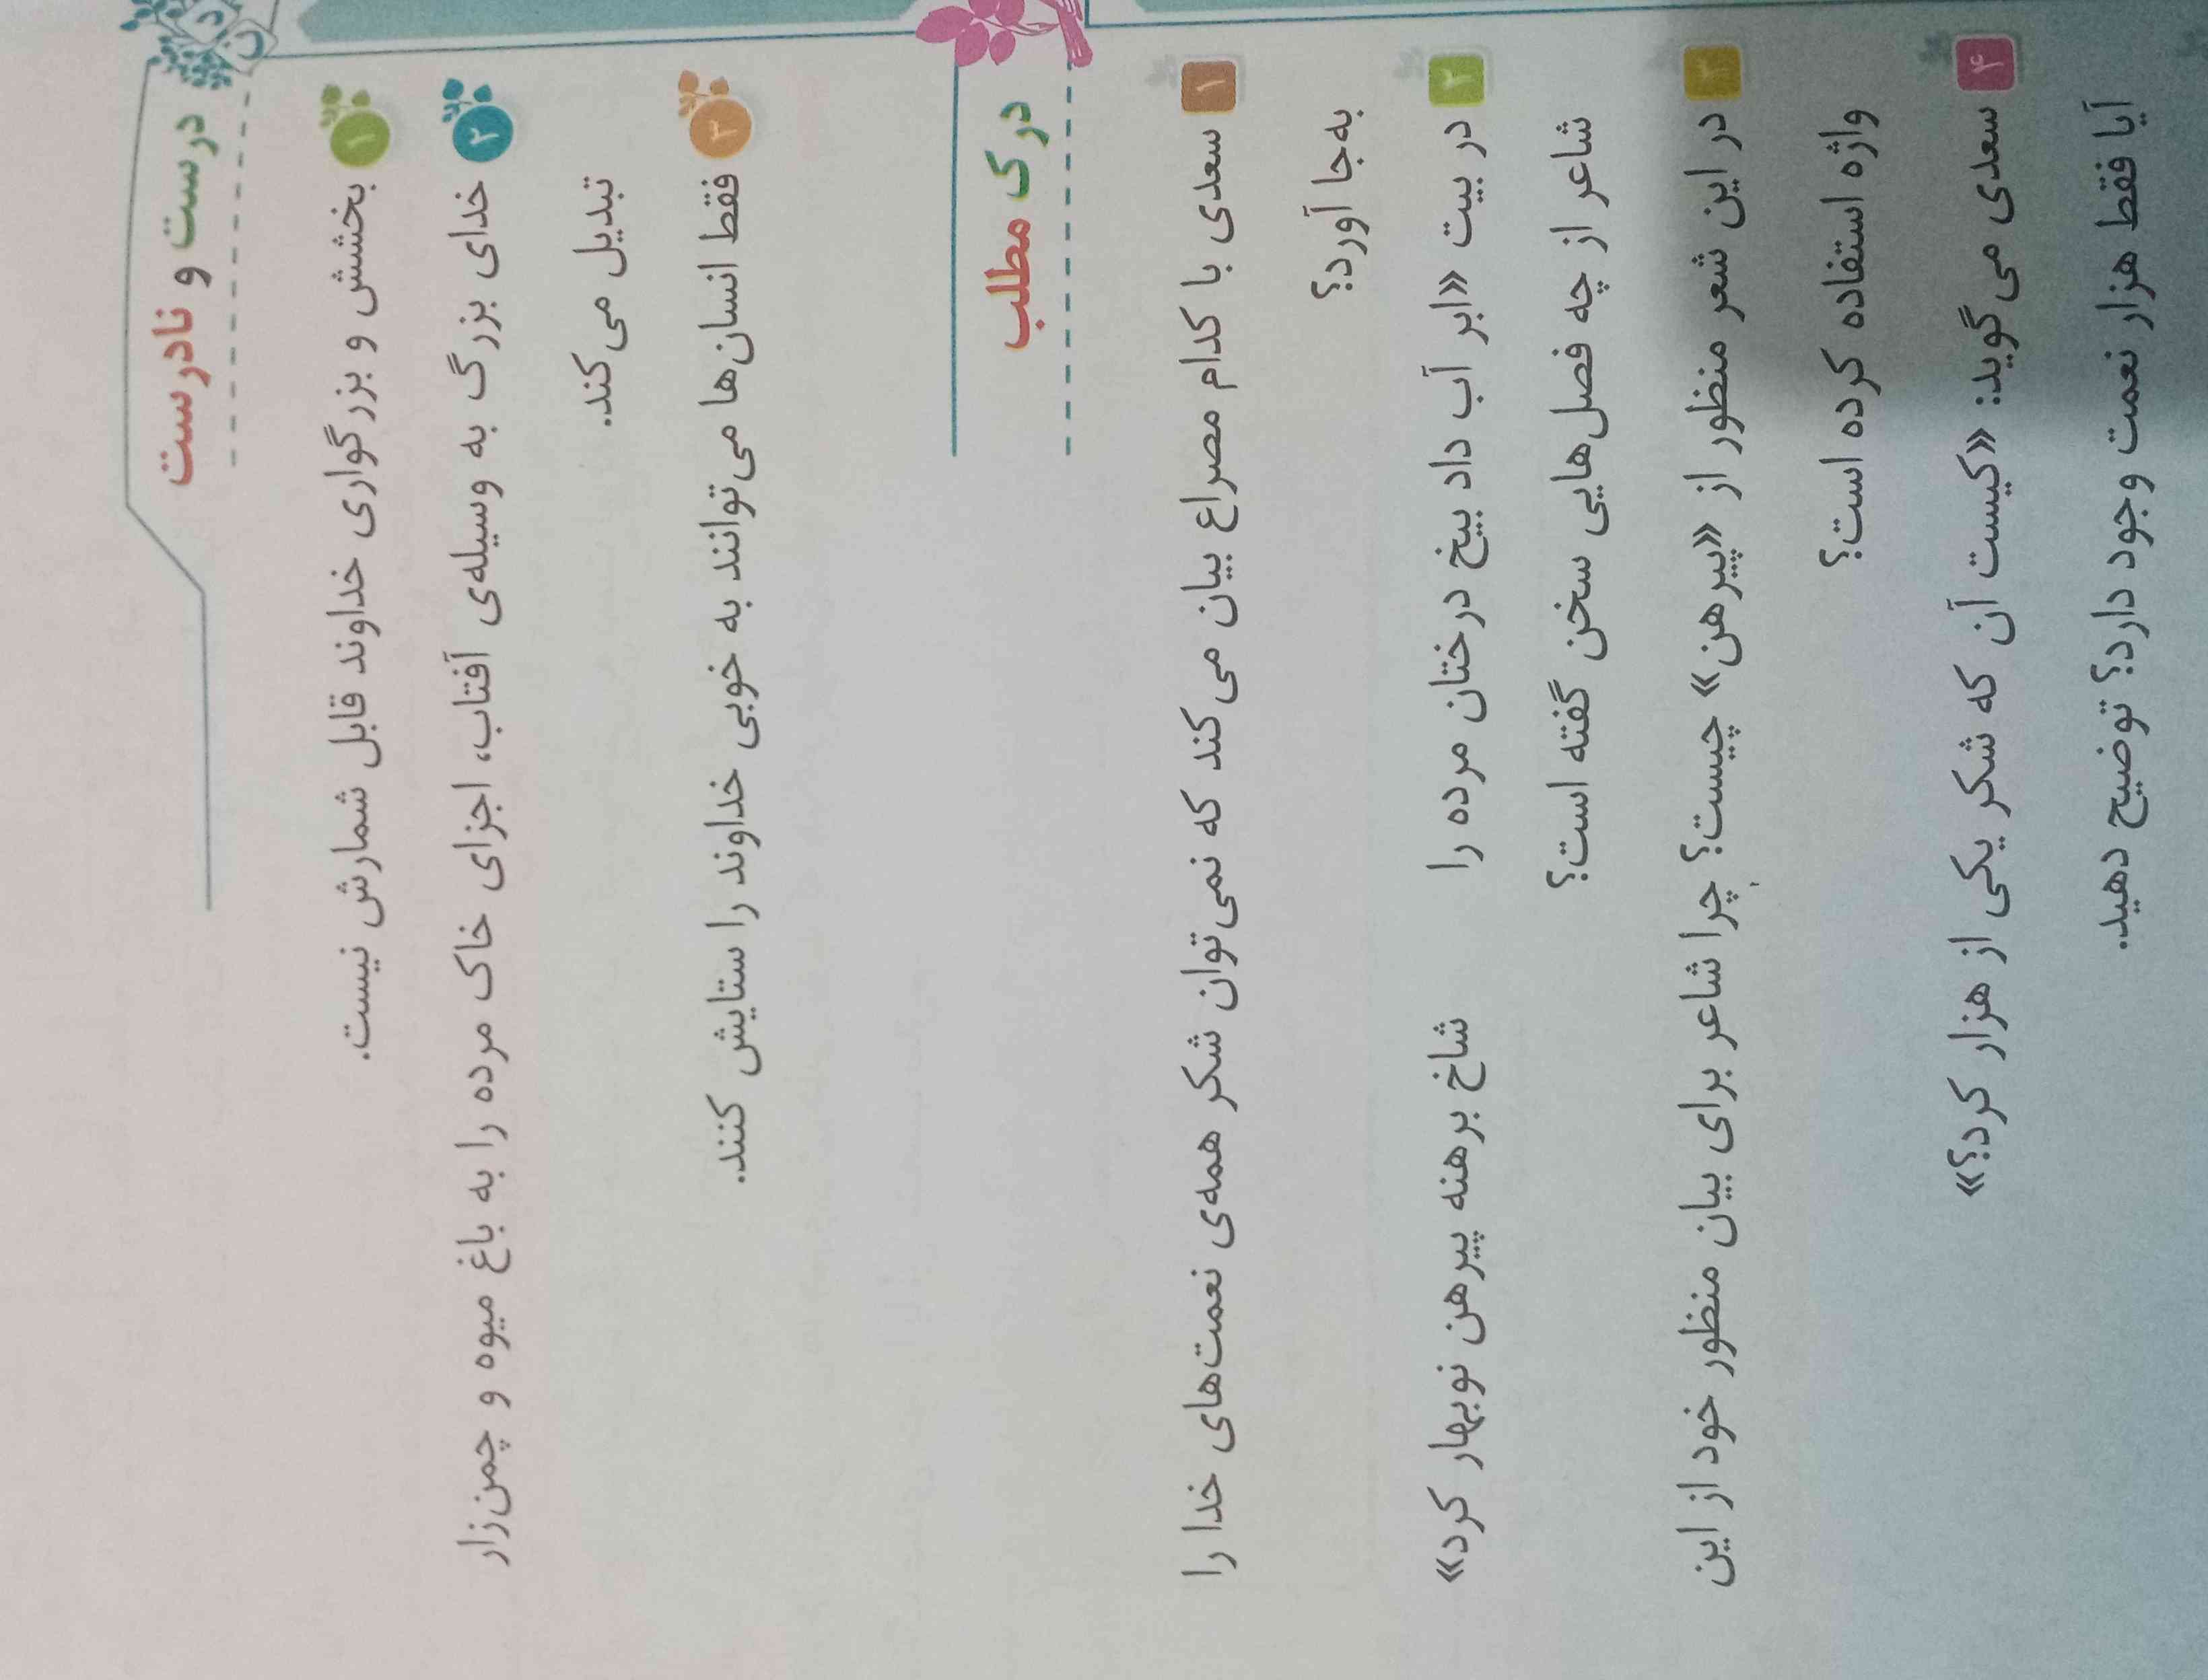 درست و نادرست
۱ بخشش و بزرگواری خداوند قابل شمارش نیست.
۲ خدای بزرگ به وسیله‌ی آفتاب، اجزای خاک مرده را به باغ میوه و چمن‌زار
تبدیل می‌کند.
۳ فقط انسان‌ها می‌توانند به خوبی خداوند را ستایش کنند.
درک مطلب
۱ سعدی با کدام مصراع بیان می‌کند که نمی‌توان شکر همه‌ی نعمت‌های خدا را
به‌جا آورد؟
۲ در بیت «ابر آب داد بیخ درختان مرده را شاخ برهنه پیرهن نوبهار کرد»
شاعر از چه فصل‌هایی سخن گفته است؟
۳ در این شعر منظور از «پیرهن» چیست؟ چرا شاعر برای بیان منظور خود از این
واژه استفاده کرده است؟
۴ سعدی می‌گوید: «کیست آن که شکر یکی از هزار کرد؟»
آیا فقط هزار نعمت وجود دارد؟ توضیح دهید.